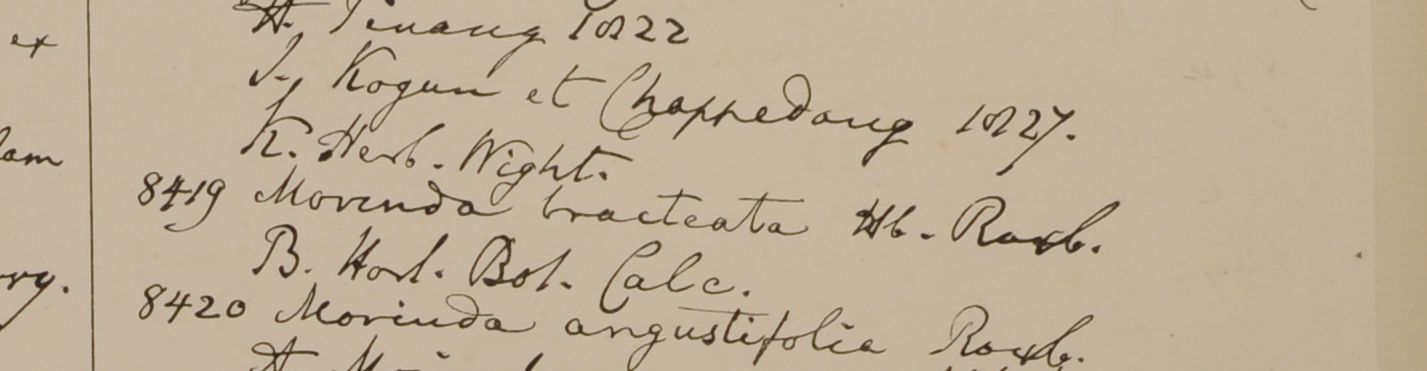 ex
H. Pinang 1822
J. Kogun et Chappedong 1827.
K. Herb. Wight.
8419 Morinda bracteata Hb. Roxb.
B. Hort. Bot. Calc.
8420 Morinda angustifolia Roxb.